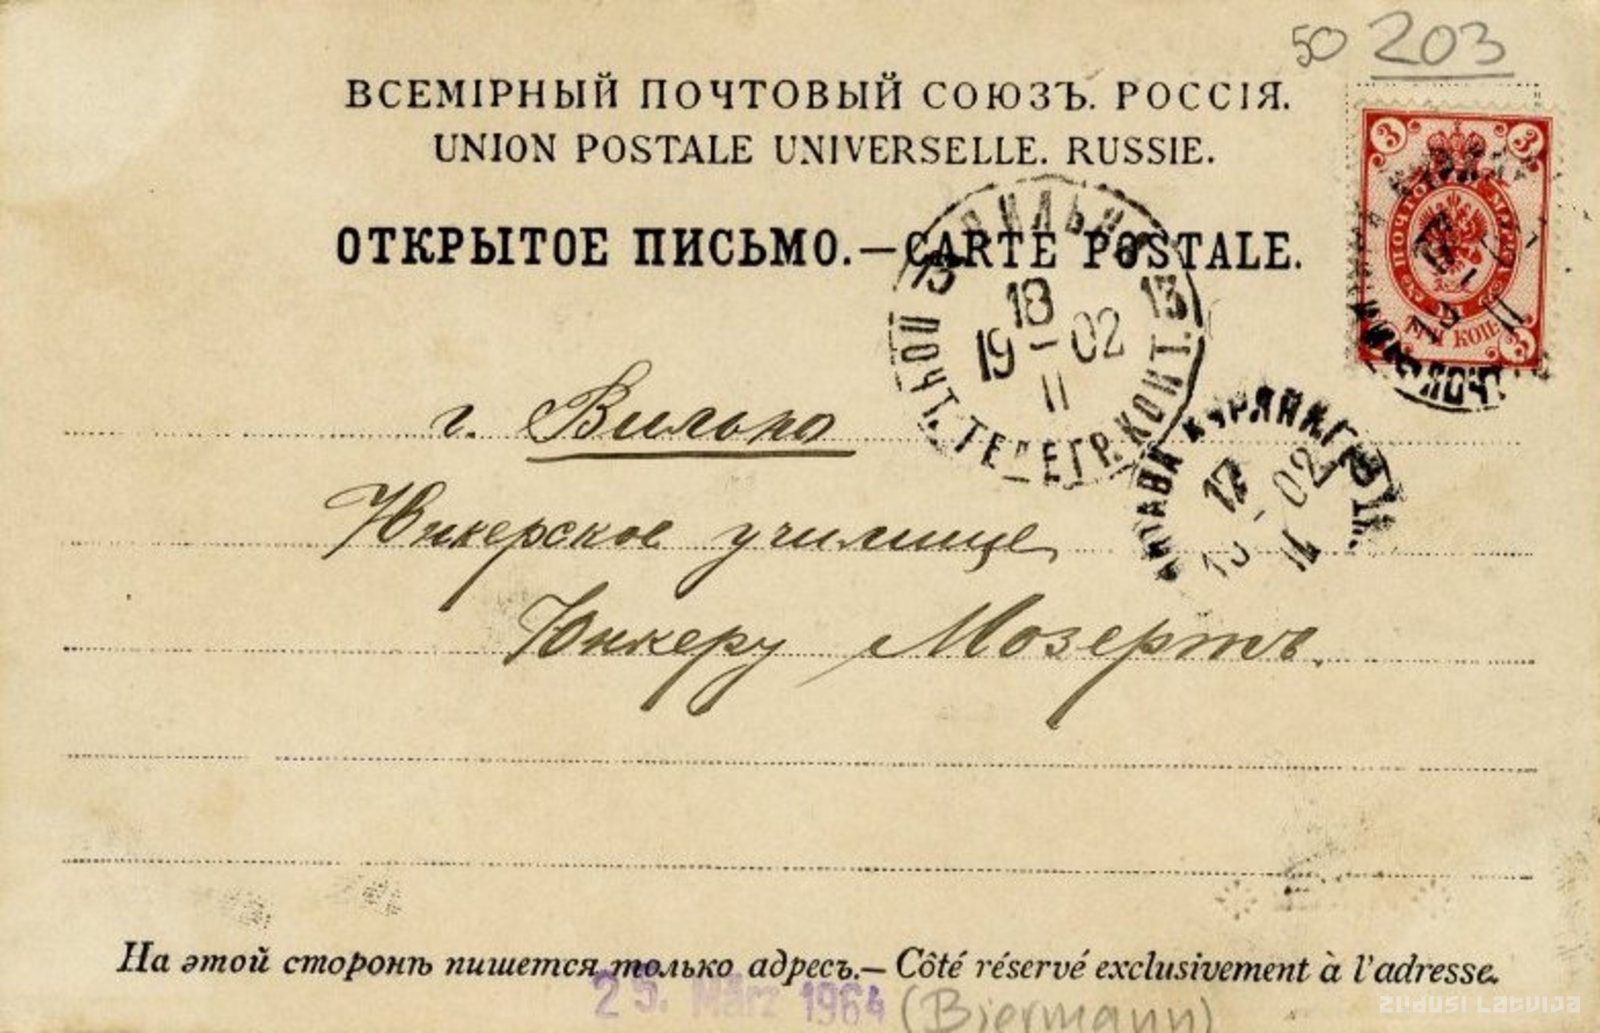 50 203
ВСЕМІРНЫЙ ПОЧТОВЫЙ СОЮЗЪ. РОССІЯ.
UNION POSTALE UNIVERSELLE. RUSSIE.
ОТКРЫТОЕ ПИСЬМО.—CARTE POSTALE.
3 3
3
ВИЛЬНА
13 13
18
19 - 02
11
ПОЧТ. ТЕЛЕГР. КОНТ.
г. Вильно
КУРЛЯНД. Г.
12
02
11
Юнкерское училище
Юнкеру Мозертъ.
На этой сторонѣ пишется только адресъ.— Côté réservé exclusivement à l'adresse.
25. März 1964 (Biermann)
Zudusi Latvija